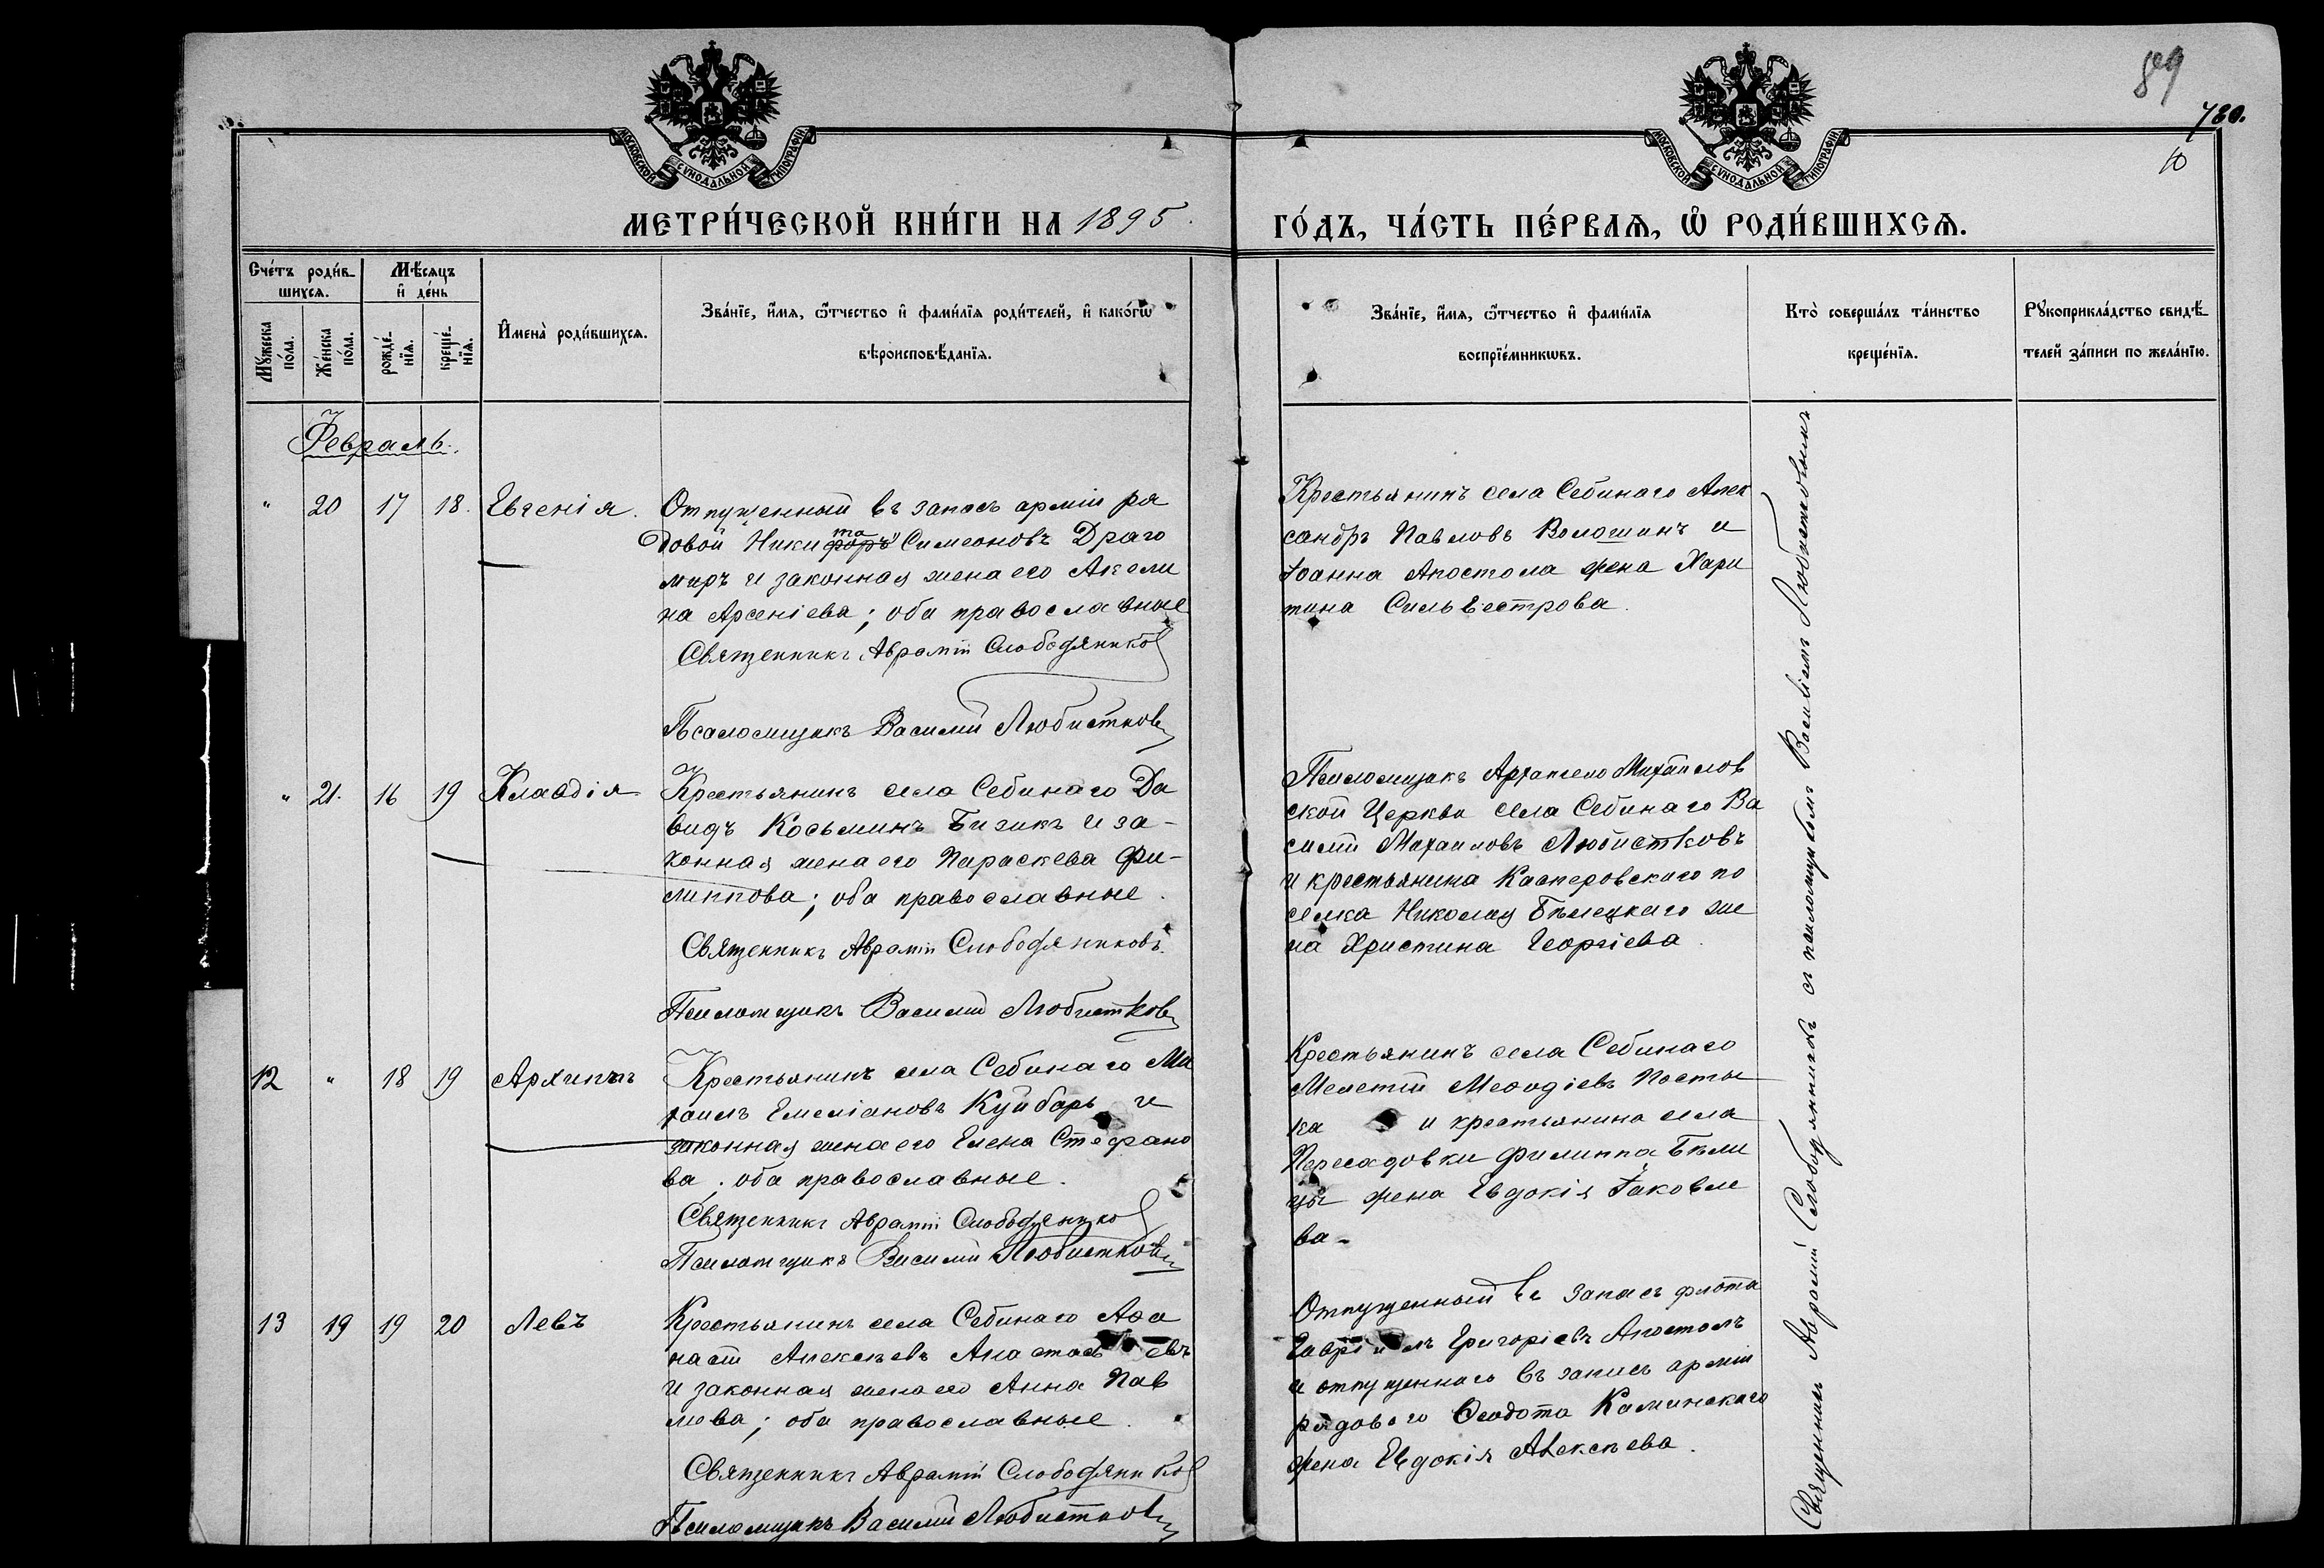 89
780.
10
МОСКОВСКОЙ СѴНОДАЛЬНОЙ ТИПОГРАФІИ
МОСКОВСКОЙ СѴНОДАЛЬНОЙ ТИПОГРАФІИ
МЕТРИ́ЧЕСКОЙ КНИ́ГИ НА 1895.
ГО́ДЪ, ЧА́СТЬ ПЕ́РВАѦ, Ѡ҆ РОДИ́ВШИХСѦ.
Сче́тъ роди́в-
шихсѧ.
Мѣ́сяцъ
и҆ де́нь
Мꙋ́жеска по́ла.
Же́нска по́ла.
рожде́-
нїѧ.
креще́-
нїѧ.
И҆мена̀ роди́вшихсѧ.
Зва́нїе, и҆́мѧ, ѻ҆́тчество и҆ фами́лїѧ роди́телей, и҆ како́гѡ
вѣроисповѣ́данїѧ.
Зва́нїе, и҆́мѧ, ѻ҆́тчество и҆ фами́лїѧ
воспрїе́мникѡвъ.
Кто̀ соверша́лъ та́инство
креще́нїѧ.
Рꙋкоприкла́дство свидѣ́-
телей за́писи по жела́нїю.
Февраль.
" 20 17 18. Евгенія.
Отпущенный въ запасъ арміи ря
довой Никифоръ та Симеоновъ Драго
миръ и законная жена его Акели
на Арсеніева; оба православные
Священникъ Аврамій Слободяников
Псаломщикъ Василій Любистковъ
Крестьянинъ села Себинаго Алек
сандръ Павловъ Волошинъ и
Іоанна Апостола жена Хари
тина Сильвестрова.
" 21. 16 19 Клавдія
Крестьянинъ села Себинаго Да
видъ Косьминъ Бизикъ и за-
конная жена его Параскева Фи-
липпова; оба православные.
Священникъ Аврамій Слободяниковъ.
Псаломщикъ Василій Любистковъ
Псаломщикъ Архангело Михайлов
ской Церкви села Себинаго Ва
силій Михаиловъ Любистковъ
и крестьянина Касперовскаго по
селка Николая Бѣлецкаго же
на Христина Георгіева.
12 " 18 19 Архиппъ
Крестьянинъ села Себинаго Ми
хаилъ Емеліановъ Куйбарь и
законная жена его Елена Стефано
ва; оба православные.
Священникъ Аврамій Слободянико
Псаломщикъ Василій Любистковъ
Крестьянинъ села Себинаго
Мелетій Меѳодіевъ Посты
ка и крестьянина села
Пересадовки Филиппа Бѣли
цы жена Евдокія Іаковле
ва-
13 19 19 20 Левъ
Крестьянинъ села Себинаго Аѳа
насій Алексѣевъ
и законная жена его Анна Пав
лова; оба православные.
Священникъ Аврамій Слободяников
Псаломщикъ Василій Любистковъ
Отпущенный въ запасъ флота
Гавріилъ Григоріевъ Апостолъ
и отпущеннаго въ запасъ арміи
рядового Ѳеодота Каминскаго
жена Евдокія Алексѣева.
Священникъ Аврамій Слободяниковъ съ псаломщикомъ Василіемъ Любистковымъ.